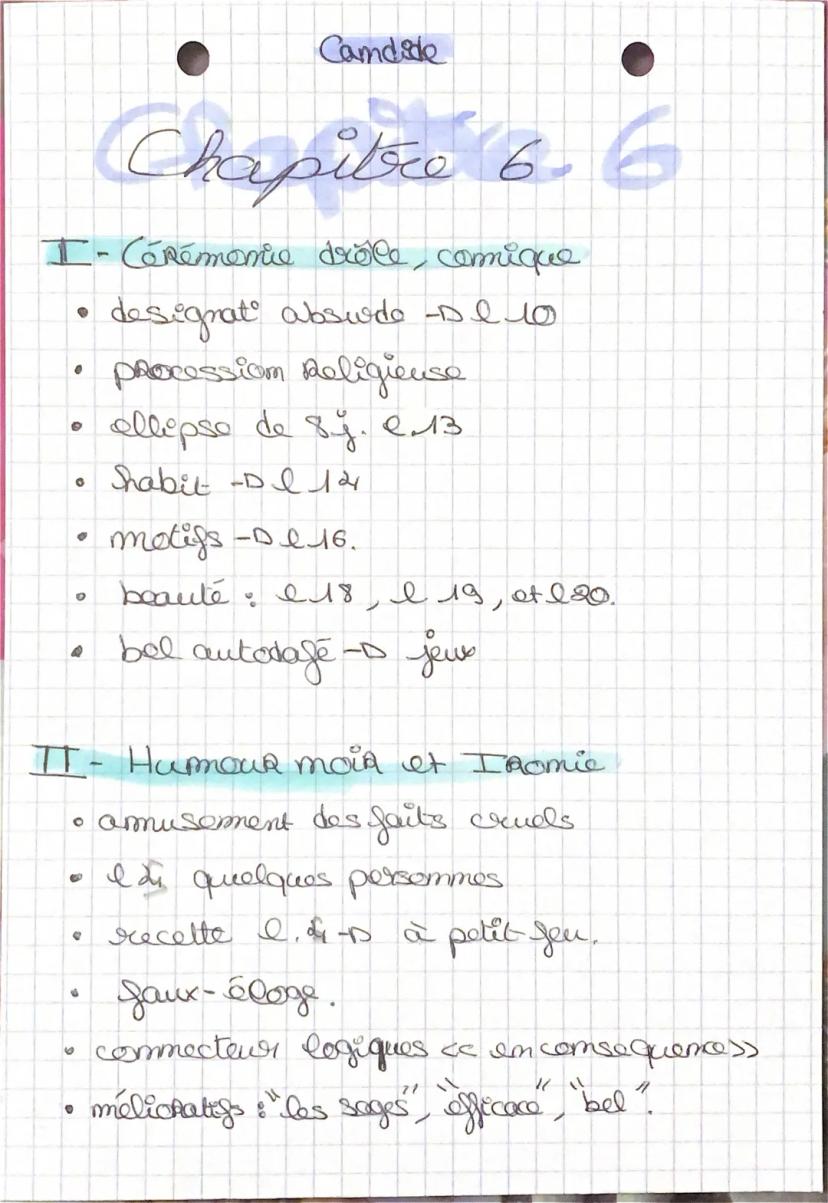 Candide
Chapitre 6.
I - Cérémonie drôle, comique
• designat° absurde → l 10
• procession religieuse
• ellipse de 8 j. l.13
• habit → l 14
• motifs → l 16.
• beauté : l 18, l 19, et l 20.
• bel autodafé → jeux
II - Humour noir et Ironie
• amusement des faits cruels
• l 4 quelques personnes
• recette l. 4 → à petit feu.
• faux-éloge.
• connecteur logiques << en consequence >>
• mélioratifs : "les sages", "efficace", "bel".